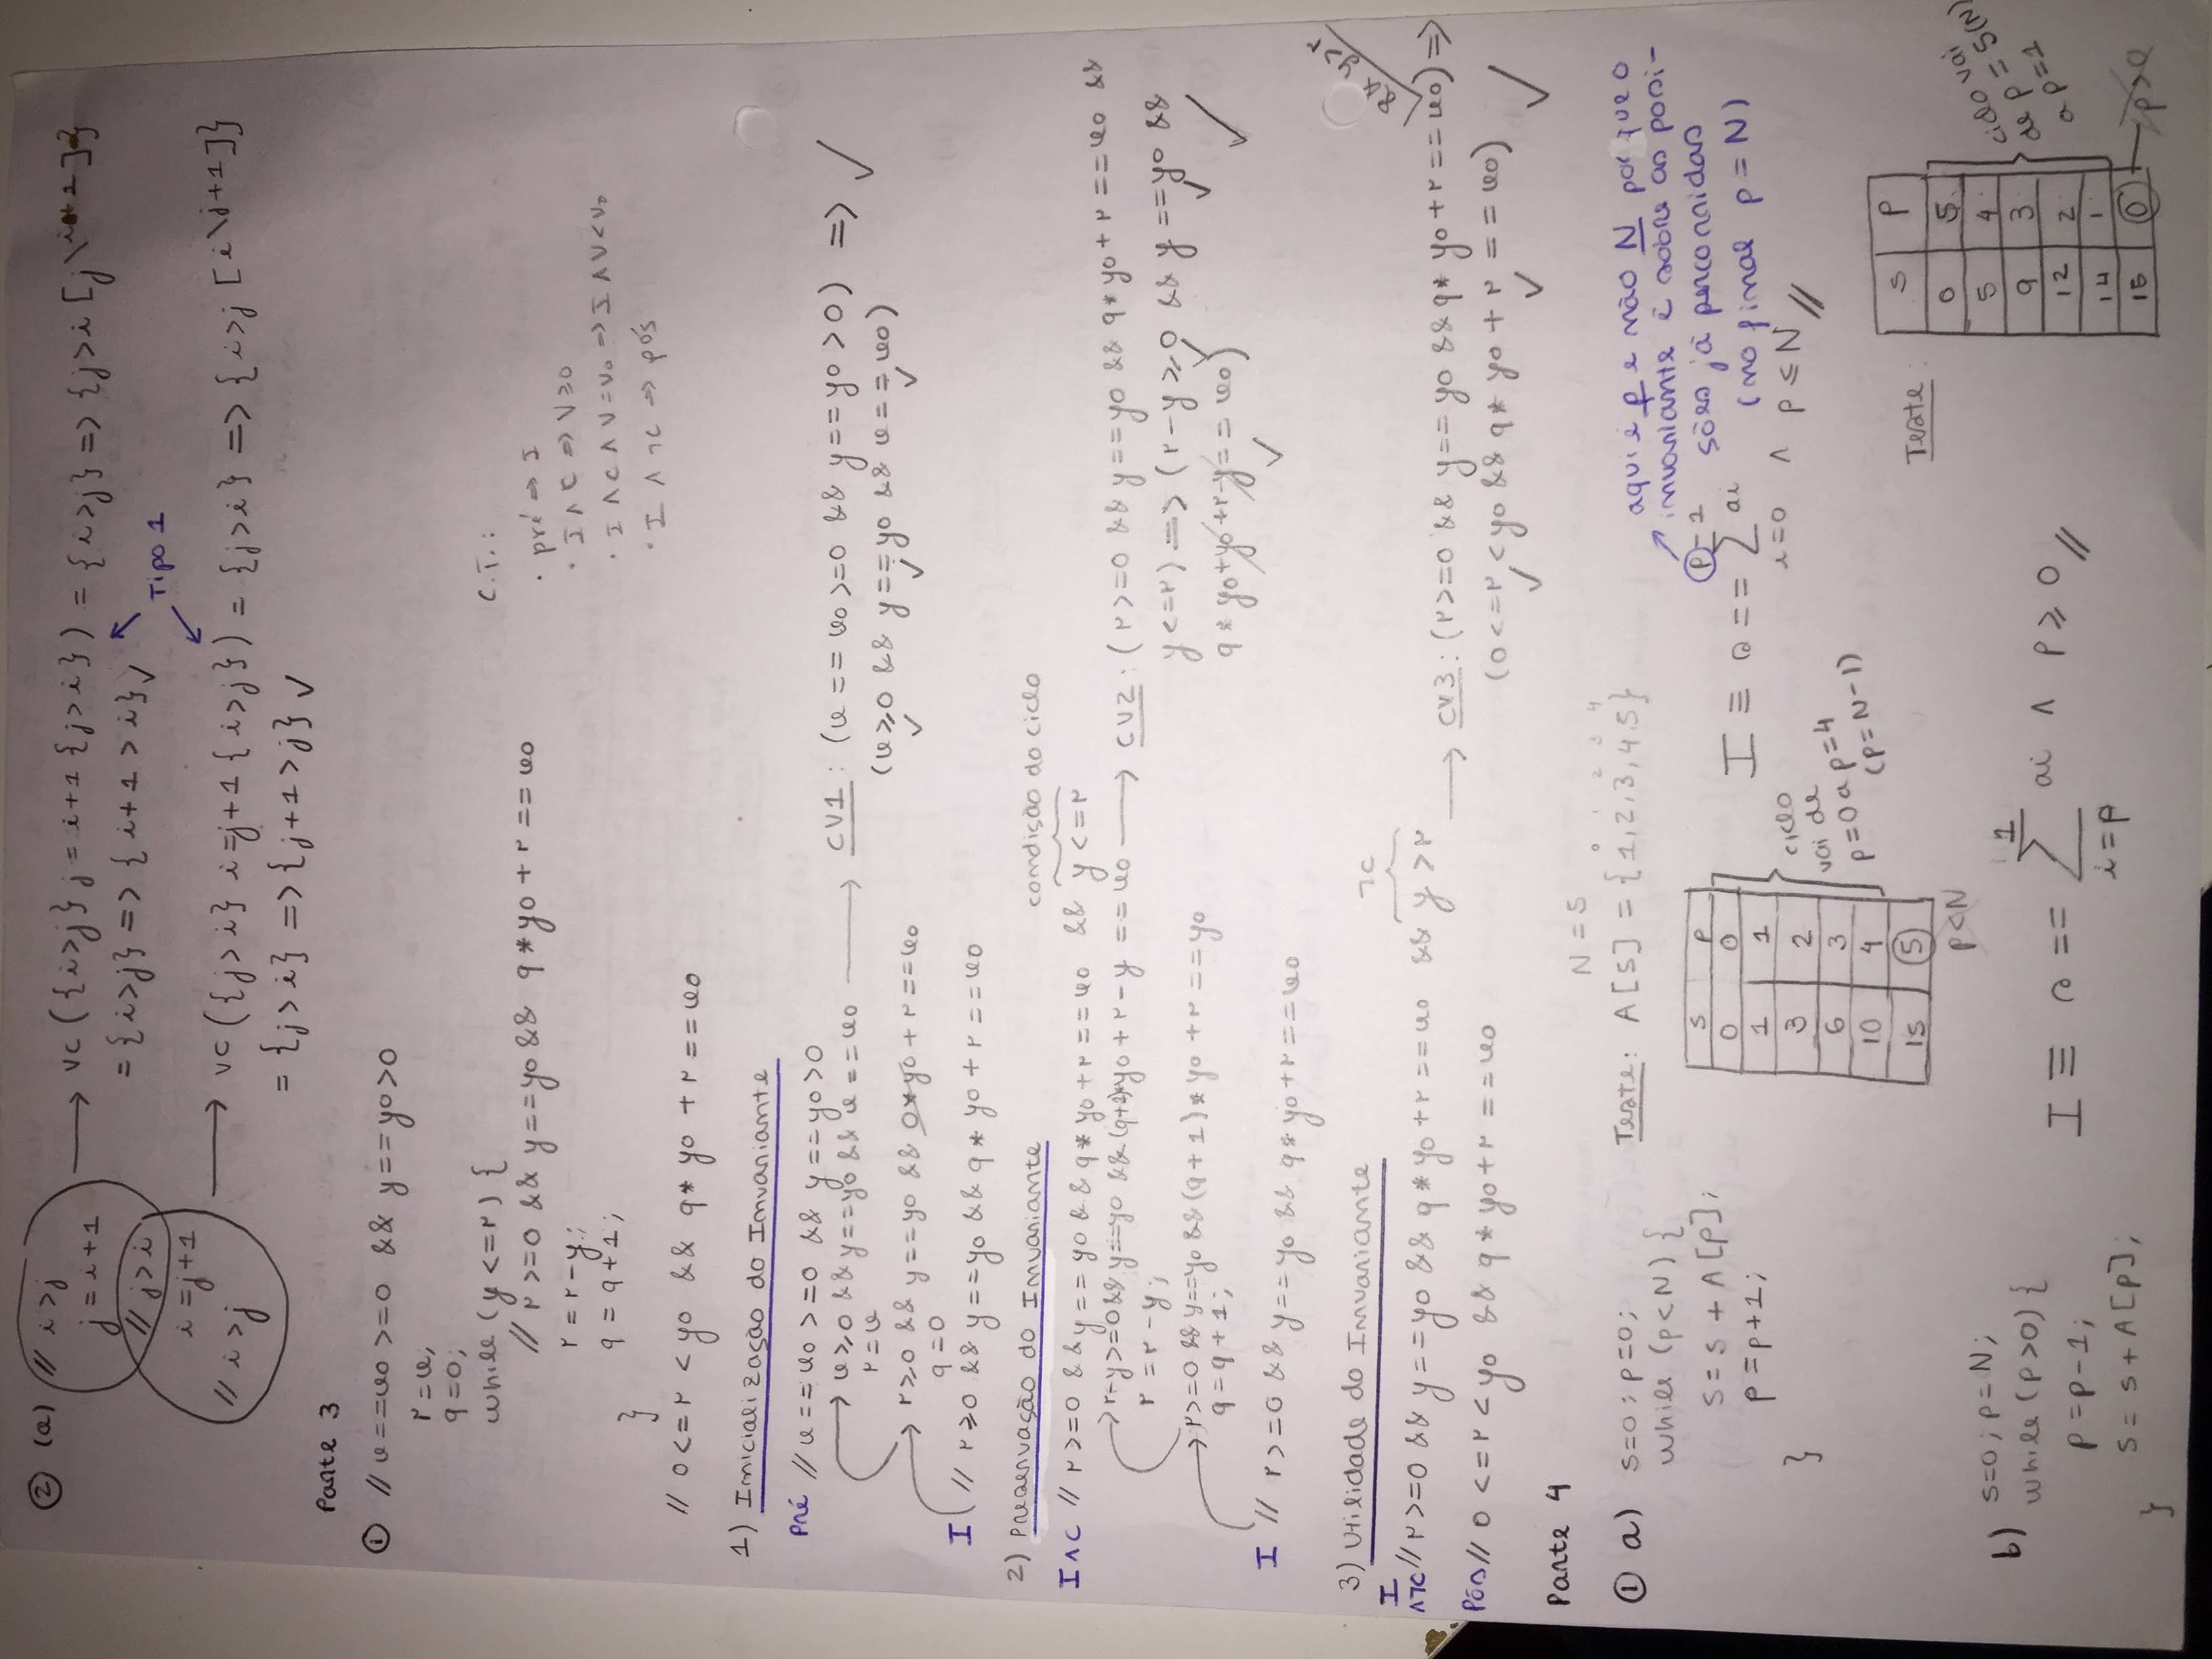 ② (a) // i>j
j = i+1
// j>i
i=j+1
// i>j
→ VC ({i>j} j = i+1 {j>i}) = {i>j} => {j>i [j\i+1]}
= {i>j} => {i+1 > i} ✓
Tipo 1
→ VC ({j>i} i=j+1 {i>j}) = {j>i} => {i>j [i\j+1]}
= {j>i} => {j+1>j} ✓
Parte 3
① // x==x0 >=0 && y==y0>0
r=x;
q=0;
while (y <=r) {
// r>=0 && y==y0 && q*y0+r==x0
r=r-y;
q=q+1;
}
// 0<=r < y0 && q*y0+r==x0
C.T.:
· pré => I
· I ∧ C => V≥0
· I ∧ C ∧ V=v0 => I ∧ V<v0
· I ∧ ¬C => pós
1) Inicialização do Invariante
Pré // x==x0 >=0 && y==y0>0
→ x≥0 && y==y0 && x==x0
r=x
→ r≥0 && y==y0 && 0*y0+r==x0
q=0
I // r≥0 && y==y0 && q*y0+r==x0
→ CV1: (x==x0>=0 && y==y0>0) =>
(x≥0 && y==y0 && x==x0) ✓
2) Preservação do Invariante
condição do ciclo
I∧C // r>=0 && y==y0 && q*y0+r==x0 && y<=r
→ r-y>=0 && y==y0 && (q+1)*y0+r-y==x0
r=r-y;
→ r>=0 && y==y0 && (q+1)*y0+r==x0
q=q+1;
I // r>=0 && y==y0 && q*y0+r==x0
→ CV2: (r>=0 && y==y0 && q*y0+r==x0 &&
y<=r) => (r-y≥0 && y==y0 &&
q*y0+y0+r-y==x0) ✓
3) Utilidade do Invariante
¬C
I∧¬C // r>=0 && y==y0 && q*y0+r==x0 && y>r
Pós // 0<=r<y0 && q*y0+r==x0
→ CV3: (r>=0 && y==y0 && q*y0+r==x0) =>
(0<=r<y0 && q*y0+r==x0) ✓
Parte 4
① a) s=0; p=0;
while (p<N) {
s=s+A[p];
p=p+1;
}
N=5
Teste: A[5] = {1,2,3,4,5}
0 1 2 3 4
S P
0 0
1 1
3 2
6 3
10 4
15 5
p<N
ciclo
vai de
p=0 a p=4
(p=N-1)
I ≡ s == p-1 ∑ i=0 ai ∧ p≤N //
aqui é p e não N porque o
invariante é sobre as posi-
ções já percorridas
(no final p=N)
b) s=0; p=N;
while (p>0) {
p=p-1;
s=s+A[p];
}
I ≡ s == 1 ∑ i=p ai ∧ p≥0 //
Teste:
S P
0 5
5 4
9 3
12 2
14 1
15 0
p>0
ciclo vai
de p=5(N)
a p=1